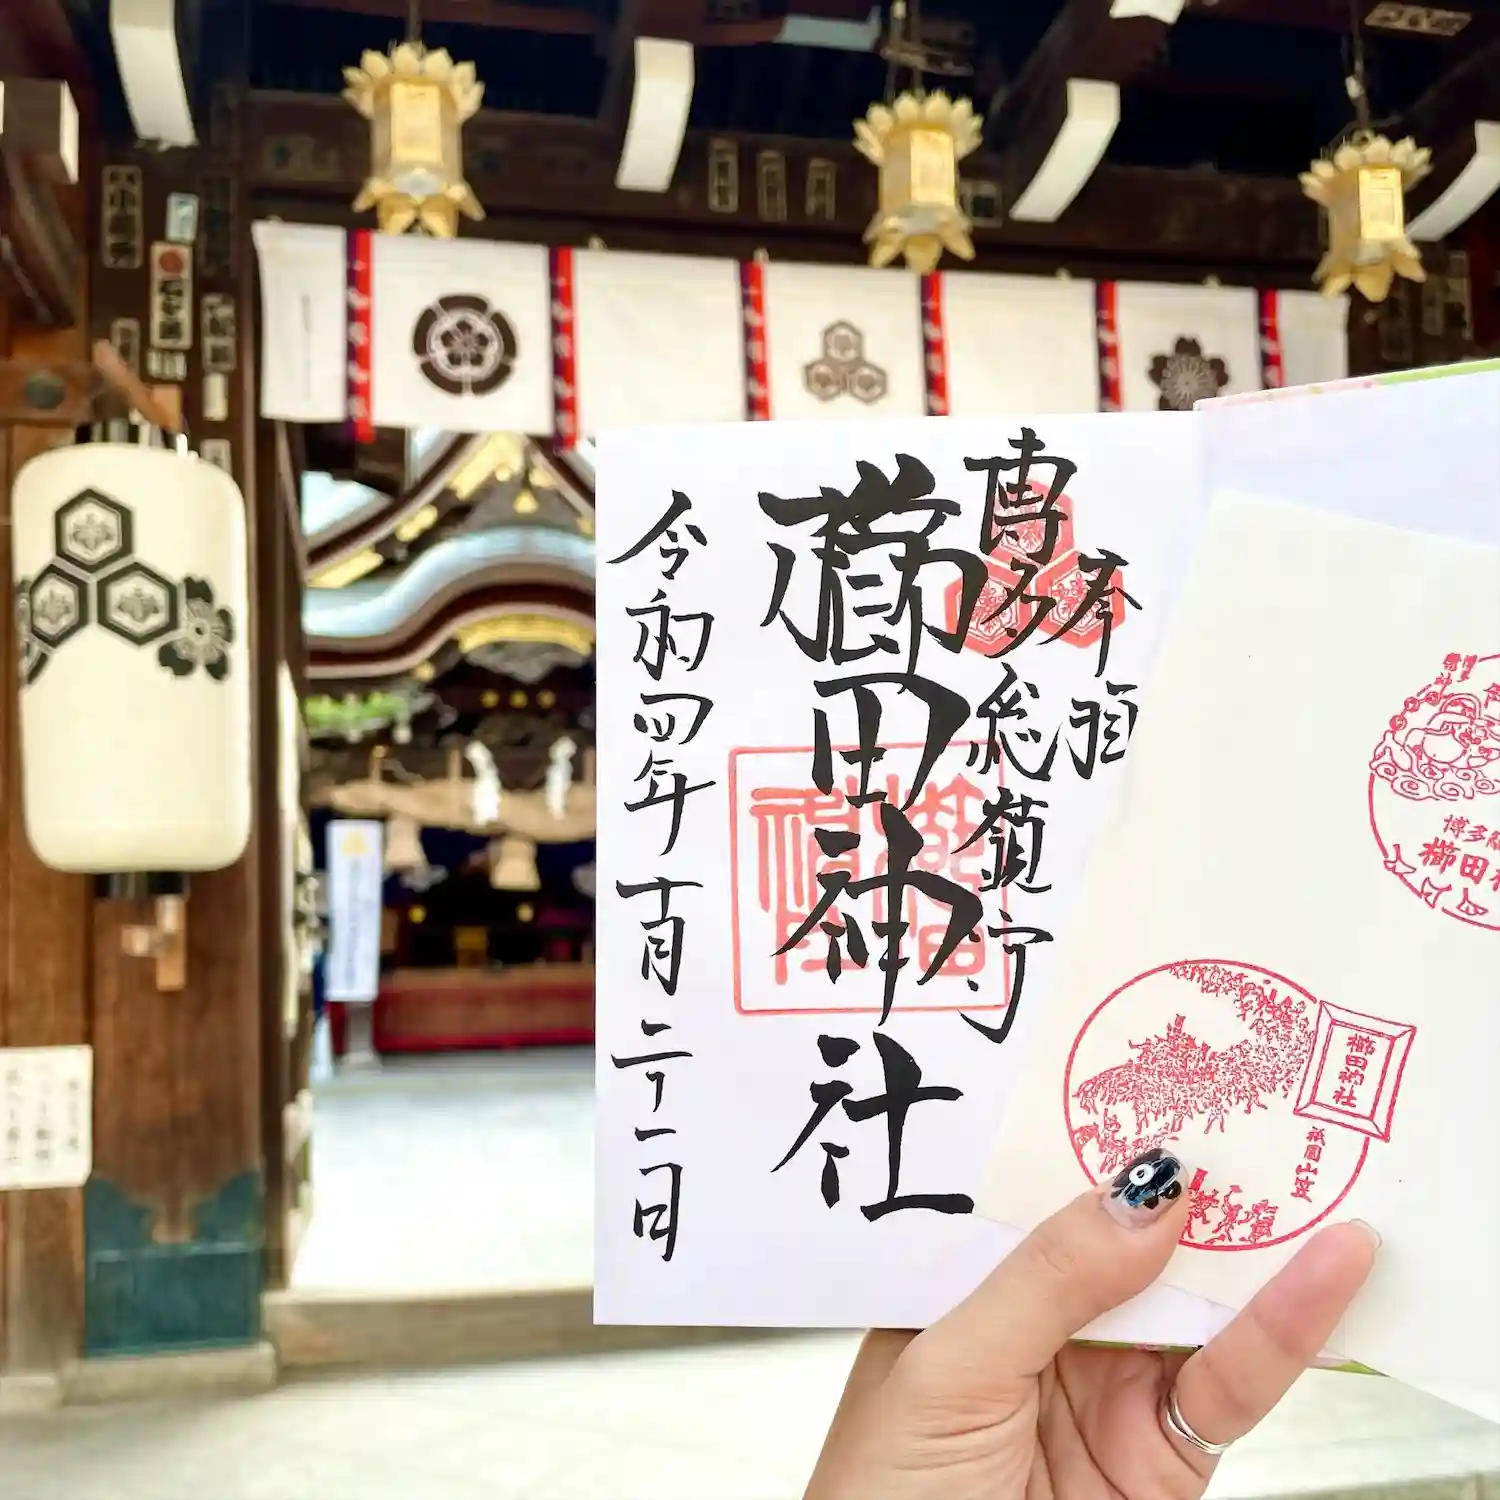 奉拝
博多総鎮守
櫛田神社
令和四年十月二十一日
櫛田神社
博多
櫛田
櫛田神社
祇園山笠